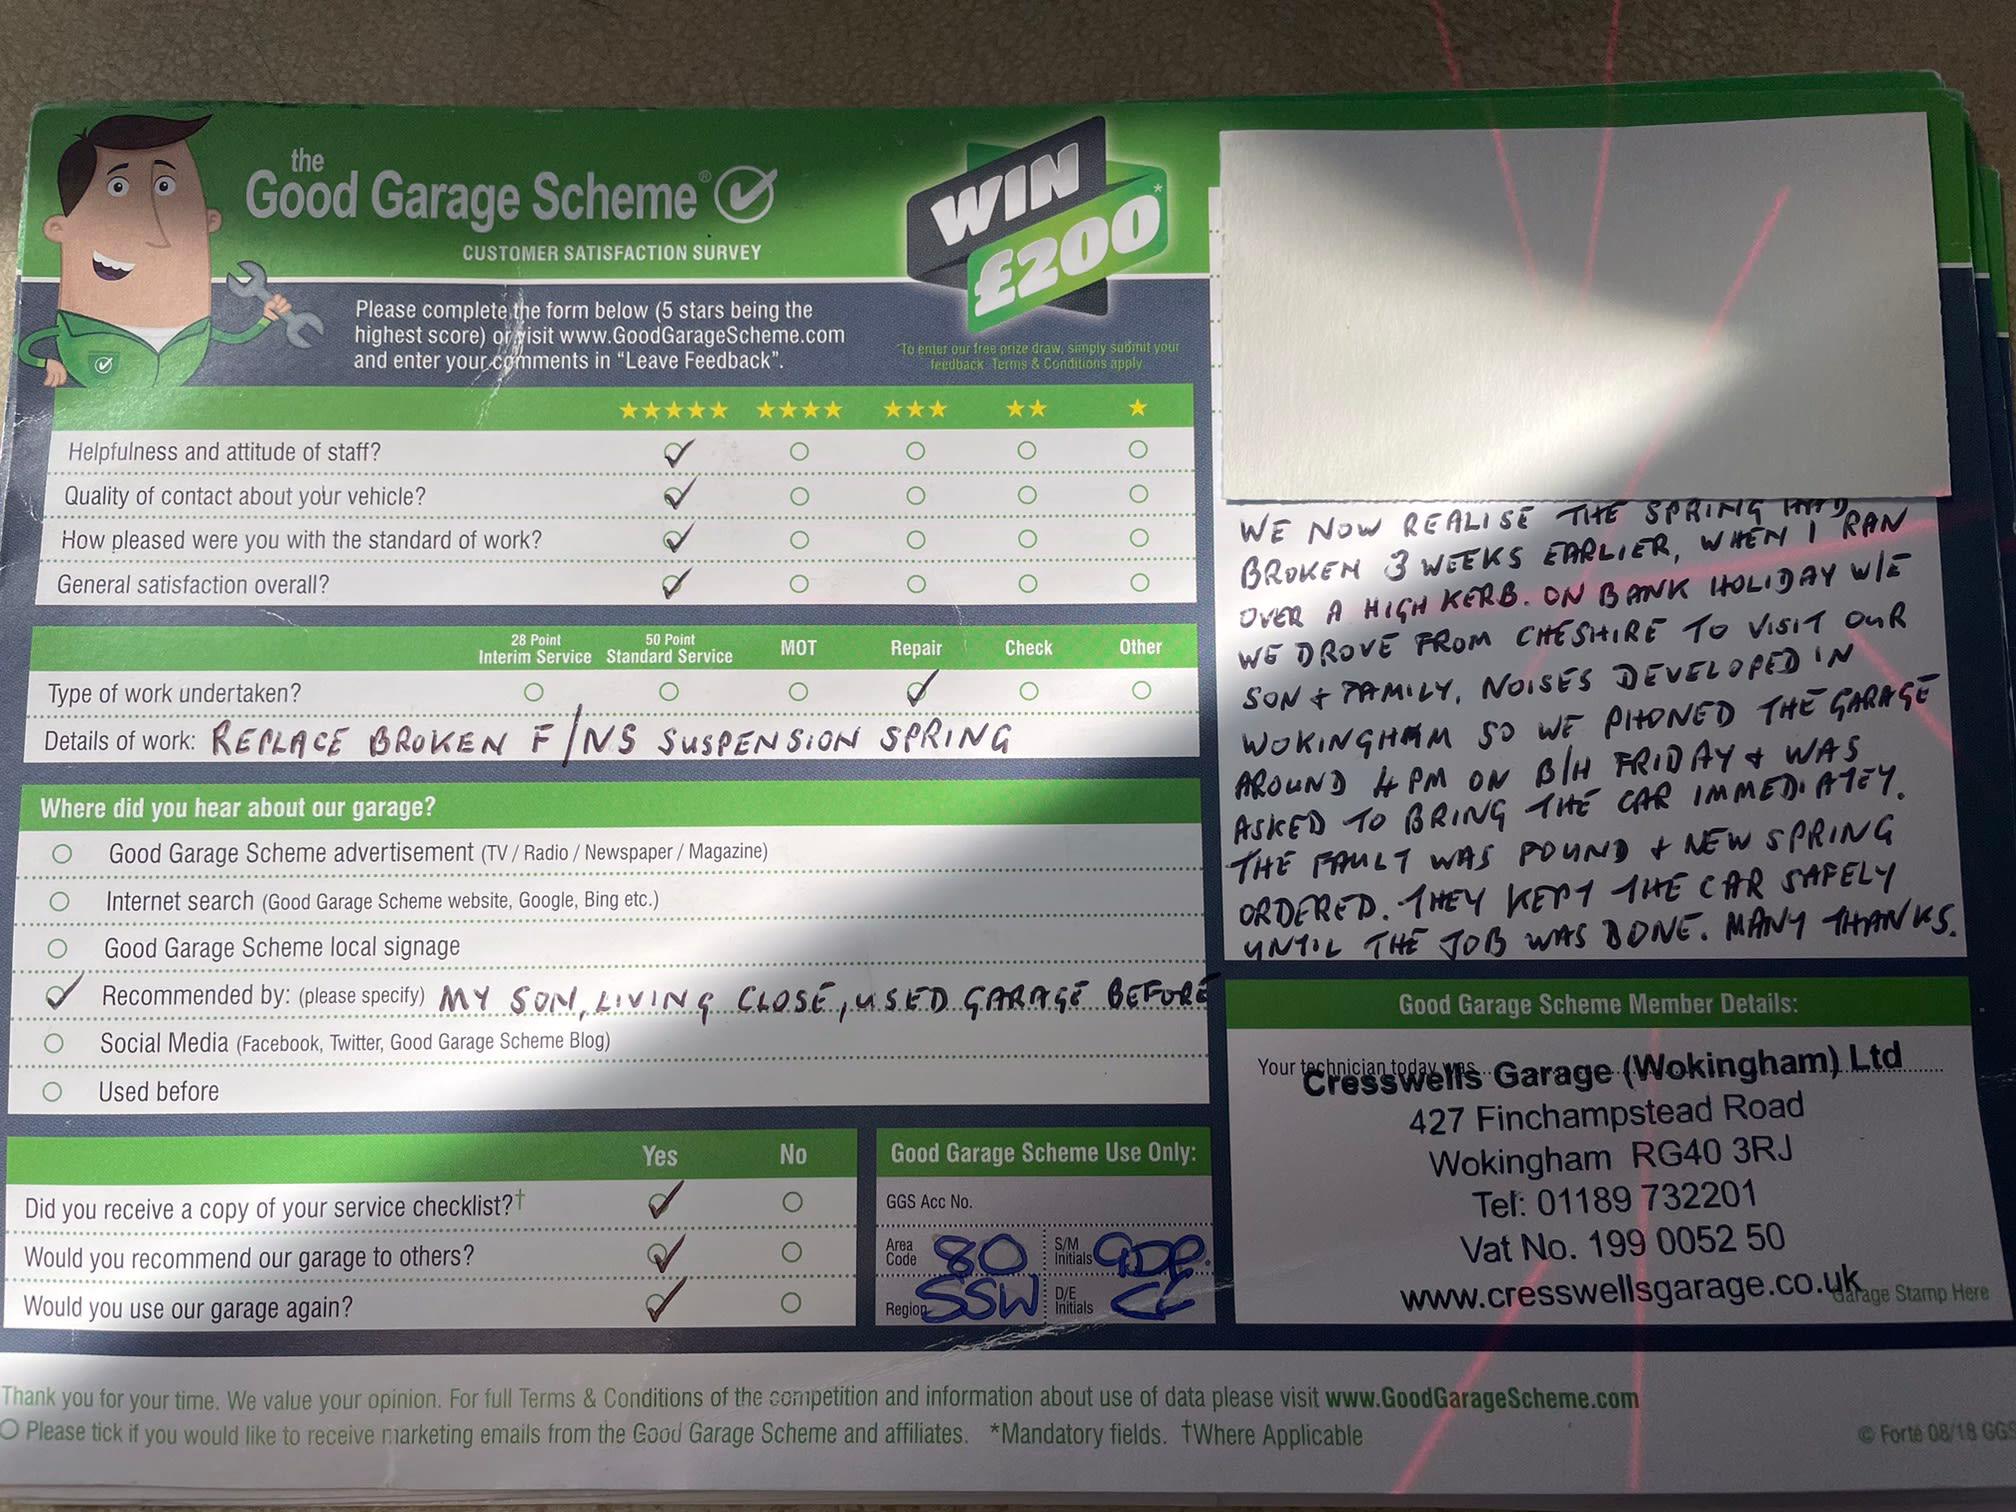 the
Good Garage Scheme®
CUSTOMER SATISFACTION SURVEY
WIN
£200*
Please complete the form below (5 stars being the
highest score) or visit www.GoodGarageScheme.com
and enter your comments in “Leave Feedback”.
*To enter our free prize draw, simply submit your
feedback. Terms & Conditions apply.
Helpfulness and attitude of staff?
Quality of contact about your vehicle?
How pleased were you with the standard of work?
General satisfaction overall?
28 Point
Interim Service
50 Point
Standard Service
MOT
Repair
Check
Other
Type of work undertaken?
Details of work: REPLACE BROKEN F/NS SUSPENSION SPRING
Where did you hear about our garage?
Good Garage Scheme advertisement (TV / Radio / Newspaper / Magazine)
Internet search (Good Garage Scheme website, Google, Bing etc.)
Good Garage Scheme local signage
Recommended by: (please specify) MY SON, LIVING CLOSE, USED GARAGE BEFORE
Social Media (Facebook, Twitter, Good Garage Scheme Blog)
Used before
Yes No
Did you receive a copy of your service checklist?†
Would you recommend our garage to others?
Would you use our garage again?
Good Garage Scheme Use Only:
GGS Acc No.
Area
Code
80
S/M
Initials
GDP.
Region
SSW
D/E
Initials
CL
WE NOW REALISE THE SPRING HAD
BROKEN 3 WEEKS EARLIER, WHEN I RAN
OVER A HIGH KERB. ON BANK HOLIDAY W/E
WE DROVE FROM CHESHIRE TO VISIT OUR
SON & FAMILY. NOISES DEVELOPED IN
WOKINGHAM SO WE PHONED THE GARAGE
AROUND 4 PM ON B/H FRIDAY & WAS
ASKED TO BRING THE CAR IMMEDIATEY.
THE FAULT WAS FOUND & NEW SPRING
ORDERED. THEY KEPT THE CAR SAFELY
UNTIL THE JOB WAS DONE. MANY THANKS.
Good Garage Scheme Member Details:
Your technician today was
Cresswells Garage (Wokingham) Ltd
427 Finchampstead Road
Wokingham RG40 3RJ
Tel: 01189 732201
Vat No. 199 0052 50
www.cresswellsgarage.co.uk
Garage Stamp Here
Thank you for your time. We value your opinion. For full Terms & Conditions of the competition and information about use of data please visit www.GoodGarageScheme.com
Please tick if you would like to receive marketing emails from the Good Garage Scheme and affiliates. *Mandatory fields. †Where Applicable
© Forté 08/18 GGS